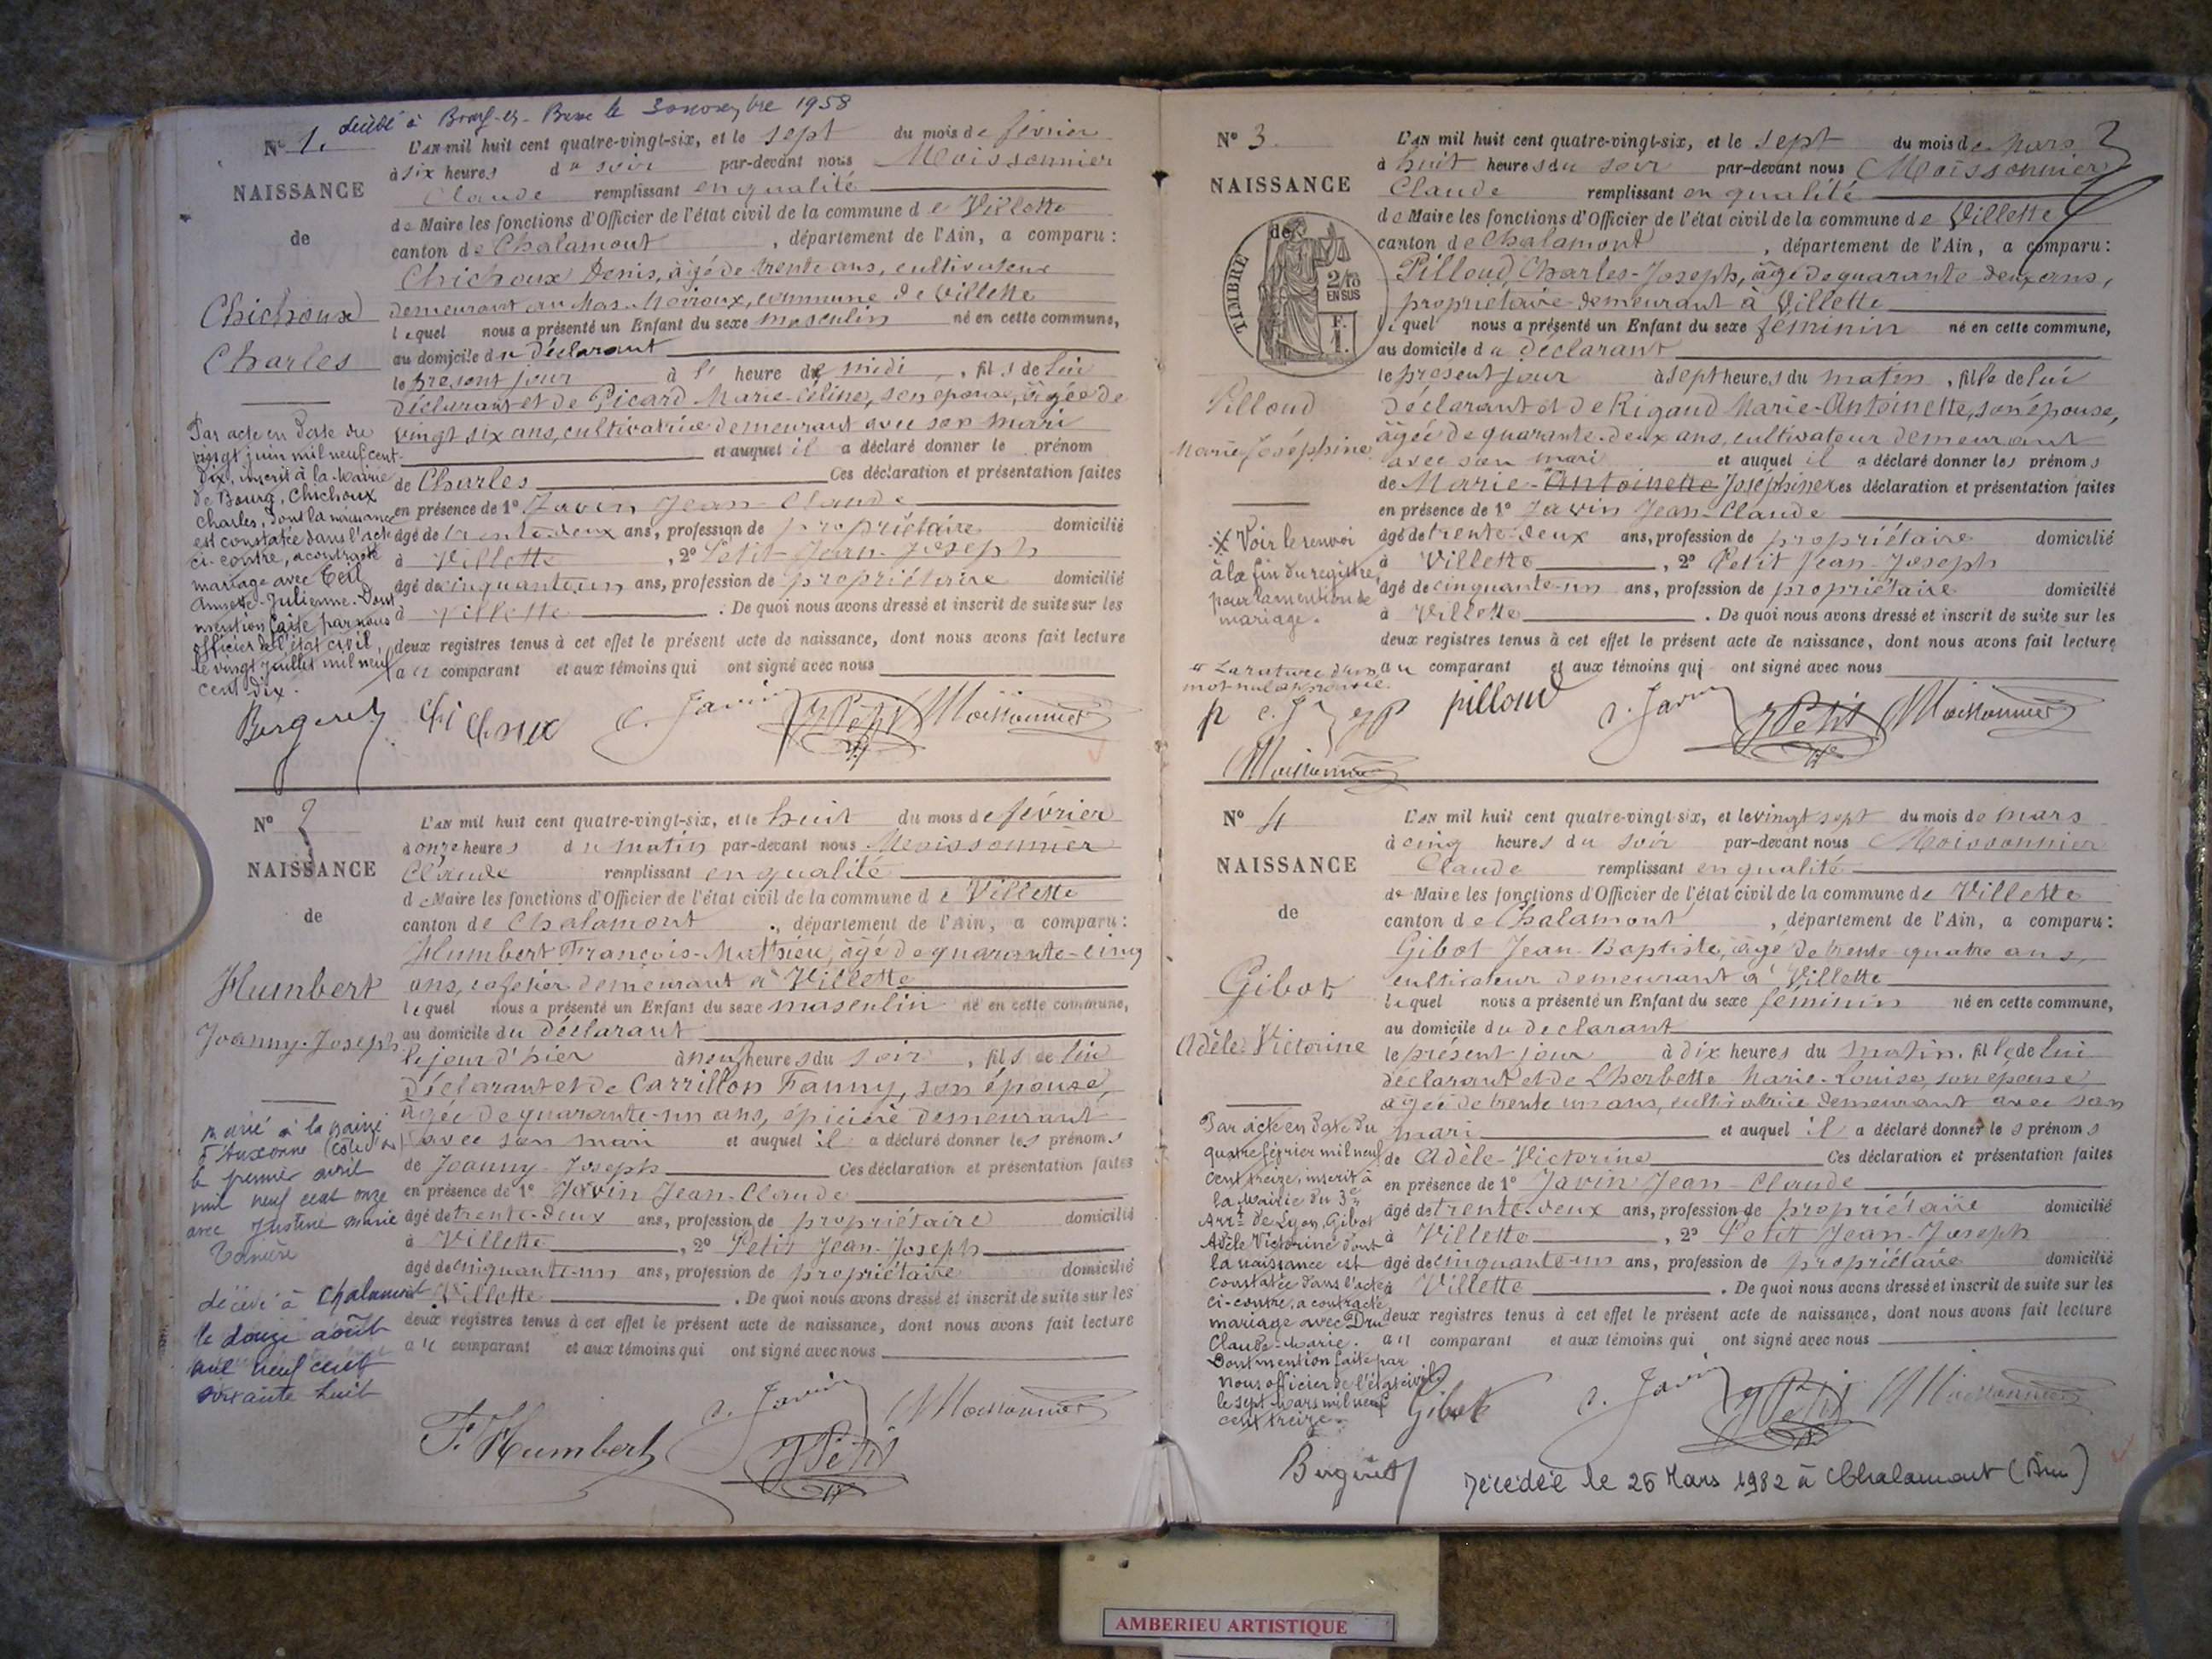 décédé à Bourg-en-Bresse le 30 novembre 1958
N° 1.
NAISSANCE
de
Chichoux
Charles
L'AN mil huit cent quatre-vingt-six, et le sept du mois de février
à six heures du soir par-devant nous Moissonnier
Claude remplissant en qualité
de Maire les fonctions d'Officier de l'état civil de la commune de Villette
canton de Chalamont, département de l'Ain, a comparu:
Chichoux Denis, âgé de trente ans, cultivateur
demeurant au Mas-Moiroux, commune de Villette
lequel nous a présenté un Enfant du sexe masculin né en cette commune,
au domicile du Déclarant
le présent jour à l' heure de midi, fils de lui
Déclarant et de Picard Marie-Céline, son épouse, âgée de
vingt six ans, cultivatrice demeurant avec son mari
et auquel il a déclaré donner le prénom
de Charles Ces déclaration et présentation faites
en présence de 1° Javin Jean-Claude
âgé de trente-deux ans, profession de propriétaire domicilié
à Villette, 2° Petit Jean-Joseph
âgé de cinquante-un ans, profession de propriétaire domicilié
à Villette. De quoi nous avons dressé et inscrit de suite sur les
deux registres tenus à cet effet le présent acte de naissance, dont nous avons fait lecture
au comparant et aux témoins qui ont signé avec nous
Par acte en date du
vingt juin mil neuf cent
dix, inscrit à la Mairie
de Bourg, Chichoux
Charles, dont la naissance
est constatée dans l'acte
ci-contre, a contracté
mariage avec
Annette-Julienne. Dont
mention faite par nous
officier de l'état civil,
le vingt juillet mil neuf
cent dix.
Bergeret Chichoux C. Javin J Petit Moissonnier
N° 2
NAISSANCE
de
Humbert
Joanny-Joseph
L'AN mil huit cent quatre-vingt-six, et le huit du mois de février
à onze heures du matin par-devant nous Moissonnier
Claude remplissant en qualité
de Maire les fonctions d'Officier de l'état civil de la commune de Villette
canton de Chalamont, département de l'Ain, a comparu:
Humbert François-Mathieu, âgé de quarante-cinq
ans, cafetier demeurant à Villette
lequel nous a présenté un Enfant du sexe masculin né en cette commune,
au domicile du déclarant
le jour d'hier à neuf heures du soir, fils de lui
Déclarant et de Carrillon Fanny, son épouse,
âgée de quarante-un ans, épicière demeurant
avec son mari et auquel il a déclaré donner les prénoms
de Joanny-Joseph Ces déclaration et présentation faites
en présence de 1° Javin Jean-Claude
âgé de trente-deux ans, profession de propriétaire domicilié
à Villette, 2° Petit Jean-Joseph
âgé de cinquante-un ans, profession de propriétaire domicilié
à Villette. De quoi nous avons dressé et inscrit de suite sur les
deux registres tenus à cet effet le présent acte de naissance, dont nous avons fait lecture
au comparant et aux témoins qui ont signé avec nous
marié à la mairie
d'Auxonne (Côte d'Or)
le premier avril
mil neuf cent onze
avec Justine Marie
décédé à Chalamont
le douze août
mil neuf cent
soixante huit
F. Humbert C. Javin J Petit Moissonnier
N° 3
NAISSANCE
de
TIMBRE
2/10
EN SUS
Pilloud
Marie-Joséphine
L'AN mil huit cent quatre-vingt-six, et le sept du mois de mars
à huit heures du soir par-devant nous Moissonnier
Claude remplissant en qualité
de Maire les fonctions d'Officier de l'état civil de la commune de Villette
canton de Chalamont, département de l'Ain, a comparu:
Pilloud, Charles-Joseph, âgé de quarante deux ans,
propriétaire demeurant à Villette
lequel nous a présenté un Enfant du sexe féminin né en cette commune,
au domicile du Déclarant
le présent jour à sept heures du matin, fille de lui
déclarant et de Rigaud Marie-Antoinette, son épouse,
âgée de quarante-deux ans, cultivateur demeurant
avec son mari et auquel il a déclaré donner les prénoms
de Marie-Antoinette Joséphine Ces déclaration et présentation faites
en présence de 1° Javin Jean-Claude
âgé de trente-deux ans, profession de propriétaire domicilié
à Villette, 2° Petit Jean-Joseph
âgé de cinquante-un ans, profession de propriétaire domicilié
à Villette. De quoi nous avons dressé et inscrit de suite sur les
deux registres tenus à cet effet le présent acte de naissance, dont nous avons fait lecture
au comparant et aux témoins qui ont signé avec nous
Voir le renvoi
à la fin du registre,
pour la mention de
mariage.
La rature d'un
mot nul approuvée.
p c. J JP pilloud C. Javin J Petit Moissonnier
Moissonnier
N° 4
NAISSANCE
de
Gibot
Adèle-Victorine
L'AN mil huit cent quatre-vingt-six, et le vingt sept du mois de mars
à cinq heures du soir par-devant nous Moissonnier
Claude remplissant en qualité
de Maire les fonctions d'Officier de l'état civil de la commune de Villette
canton de Chalamont, département de l'Ain, a comparu:
Gibot Jean-Baptiste, âgé de trente-quatre ans,
cultivateur demeurant à Villette
lequel nous a présenté un Enfant du sexe féminin né en cette commune,
au domicile du déclarant
le présent jour à dix heures du matin, fille de lui
déclarant et de Lherbette Marie-Louise, son épouse
âgée de trente un ans, cultivatrice demeurant avec son
mari et auquel il a déclaré donner les prénoms
de Adèle-Victorine Ces déclaration et présentation faites
en présence de 1° Javin Jean-Claude
âgé de trente-deux ans, profession de propriétaire domicilié
à Villette, 2° Petit Jean-Joseph
âgé de cinquante-un ans, profession de propriétaire domicilié
à Villette. De quoi nous avons dressé et inscrit de suite sur les
deux registres tenus à cet effet le présent acte de naissance, dont nous avons fait lecture
au comparant et aux témoins qui ont signé avec nous
Par acte en date du
quatre février mil neuf
cent treize, inscrit à
la Mairie du 3e
Arrt de Lyon, Gibot
Adèle Victorine dont
la naissance est
constatée dans l'acte
ci-contre, a contracté
mariage avec Dru
Claude-Marie.
Dont mention faite par
nous officier de l'état civil
le sept mars mil neuf
cent treize.
Gibot C. Javin J Petit Moissonnier
Bergeret
Décédée le 26 Mars 1982 à Chalamont (Ain)
AMBERIEU ARTISTIQUE